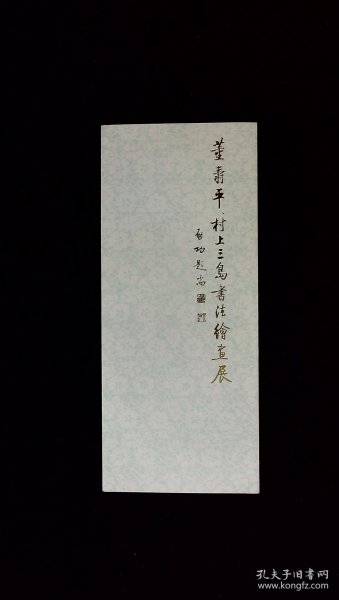 董寿平、村上三島書法繪畫展
啓功題耑
孔夫子旧书网
www.kongfz.com